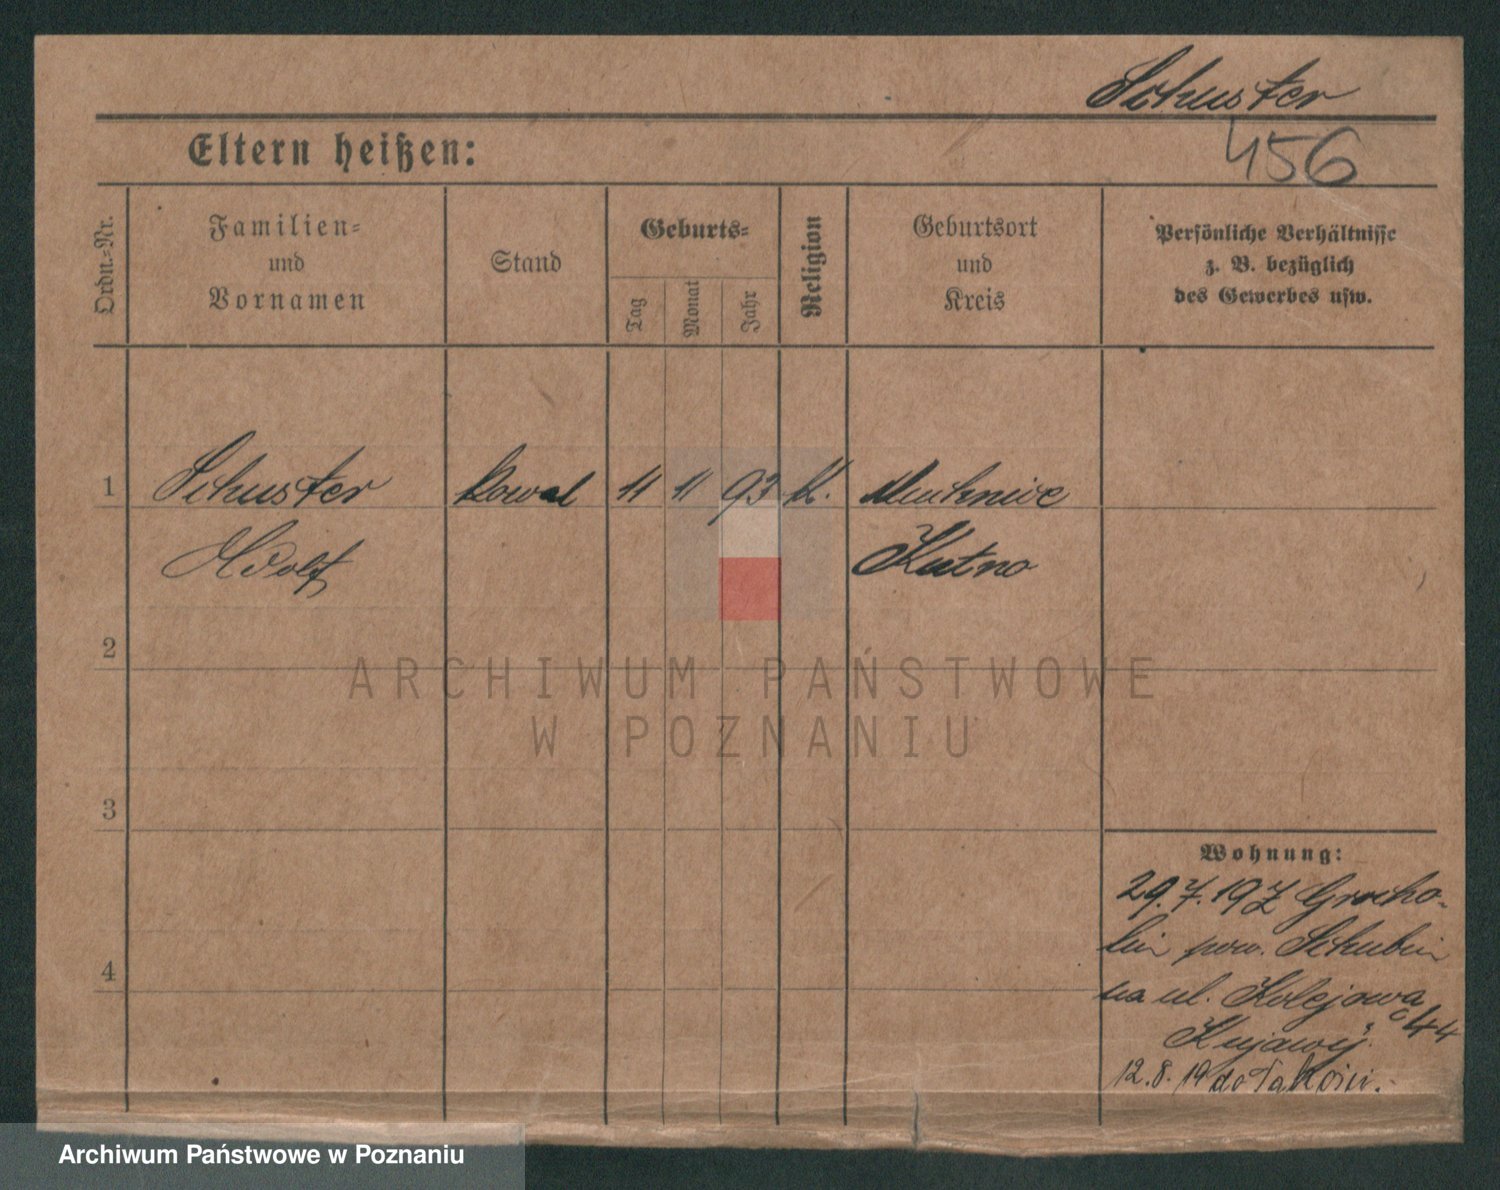 Schuster
Eltern heißen:
456
Ordn.-Nr.
Familien-
und
Vornamen
Stand
Geburts-
Tag
Monat
Jahr
Religion
Geburtsort
und
Kreis
Persönliche Verhältnisse
z. B. bezüglich
des Gewerbes usw.
1
Schuster
Kowal
11
11
93
K.
Adolf
Kutno
2
3
4
Wohnung:
29.7.19 z Grocho-
lin pow. Schubin
na ul. Kolejowa
44
Kujawy
12.8.19 do
ARCHIWUM PAŃSTWOWE
W POZNANIU
Archiwum Państwowe w Poznaniu